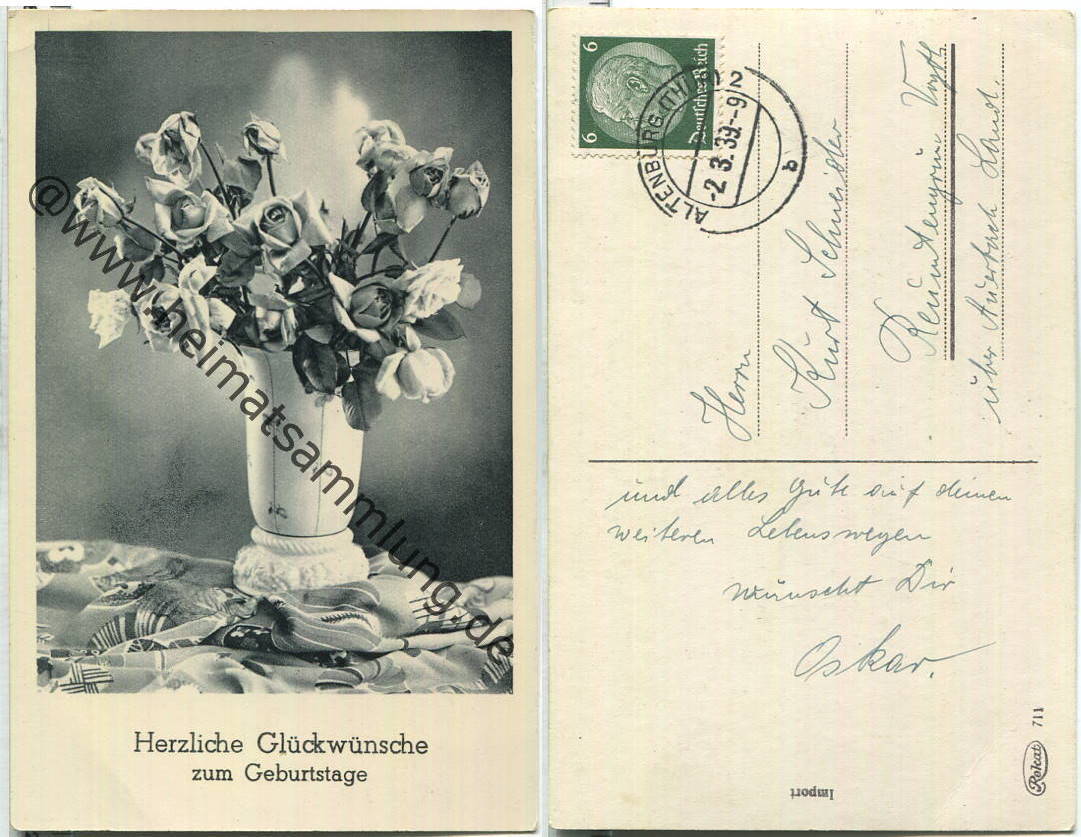 @www.heimatsammlung.de
Herzliche Glückwünsche
zum Geburtstage
6 6
Deutsches Reich
ALTENBURG (THÜR) 2
-2.3.39.-9
b
Herrn
Kurt Schneider
Reumtengrün Vogtl
über Auerbach Land.
und alles Gute auf deinen
weiteren Lebenswegen
wünscht Dir
Oskar.
Import
Rekat 711